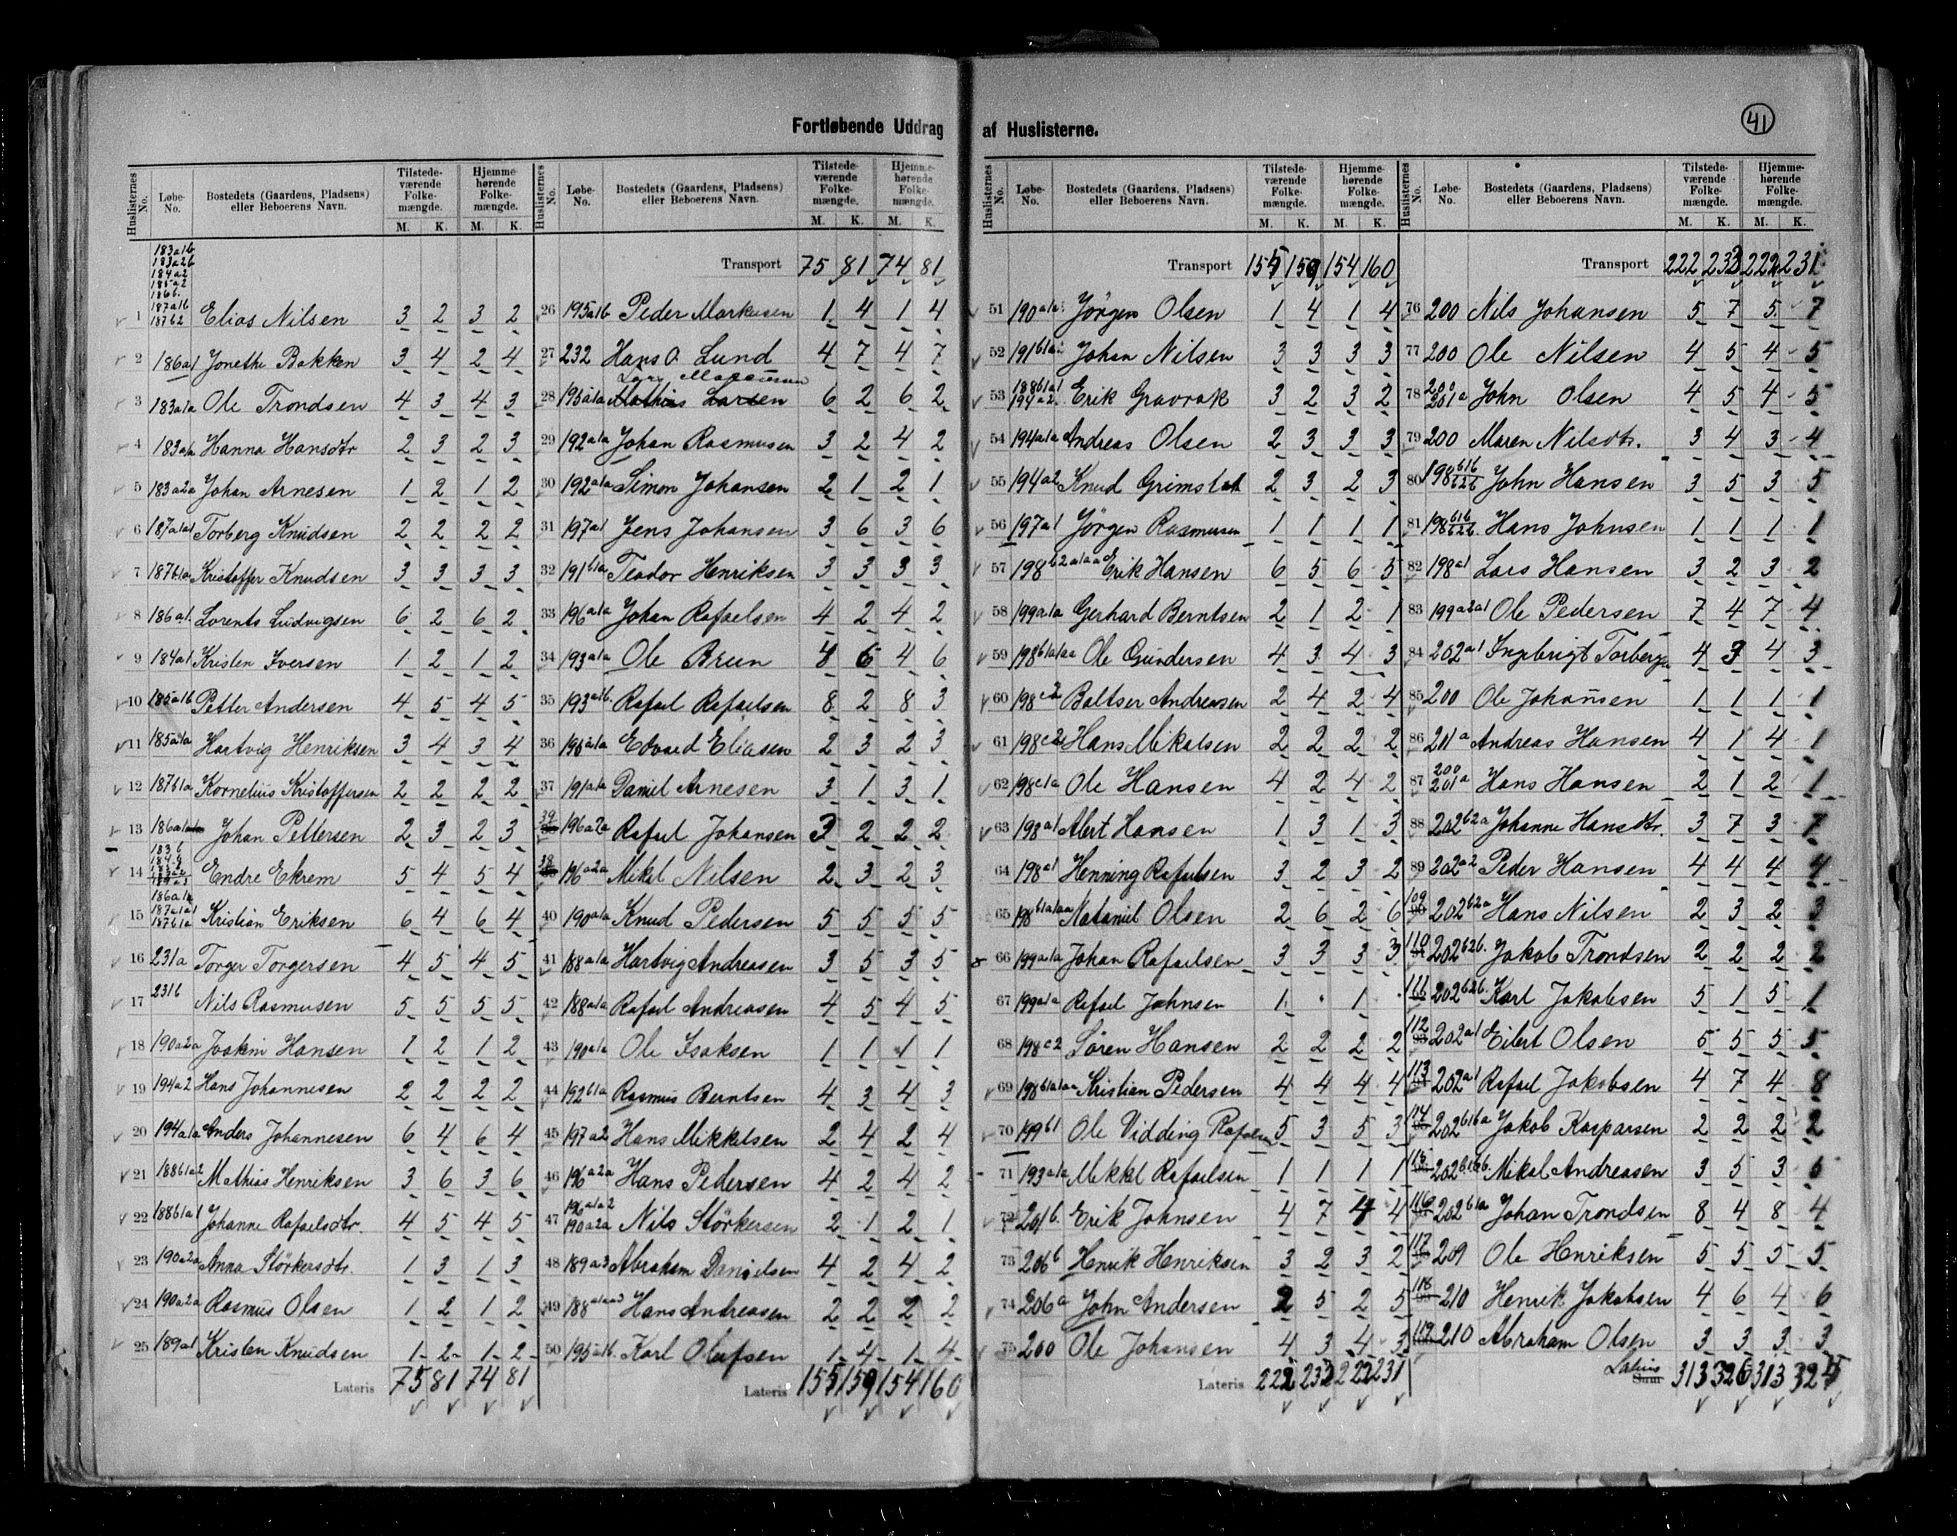 Fortløbende Uddrag af Huslisterne.
41
Huslisternes No. Løbe-No. Bostedets (Gaardens, Pladsens) eller Beboerens Navn. Tilstedeværende Folkemængde. M. K. Hjemmehørende Folkemængde. M. K.
183a1b
183a2b
184a2
185a2
186b.
187a1b
1 187b2 Elias Nilsen 3 2 3 2
2 186a1 Jonethe Bakken 3 4 2 4
3 183a1a Ole Trondsen 4 3 4 3
4 Hanna Hansdtr 2 3 2 3
5 183a2a Johan Arnesen 1 2 1 2
6 187a1a1 Torberg Knudsen 2 2 2 2
7 187b1a Kristoffer Knudsen 3 3 3 3
8 186a1. Lorents Ludvigsen 6 2 6 2
9 184a1 Kristen Iversen 1 2 1 2
10 185a1b Petter Andersen 4 5 4 5
11 185a1a Hartvig Henriksen 3 4 3 4
12 187b1a Kornelius Kristoffersen 2 2 2 2
13 Johan Pettersen 2 3 2 3
14 Endre Ekrem 5 4 5 4
186a1a
187a1a1
15 187b1a Kristian Eriksen 6 4 6 4
16 231a Torger Torgersen 4 5 4 5
17 231b Nils Rasmusen 5 5 5 5
18 190a2a Joakim Hansen 1 2 1 2
19 194a2 Hans Johannesen 2 2 2 2
20 194a1a Anders Johannesen 6 4 6 4
21 188b1a2 Mathias Henriksen 3 6 3 6
22 188b1a1 Johanne Rafaelsdtr. 4 5 4 5
23 190a2a Anna Störkersdtr. 1 3 1 3
24 190a2a Rasmus Olsen 1 2 1 2
25 189a1 Kristen Knudsen 1 2 1 2
Lateris 75 81 74 81
Huslisternes No. Løbe-No. Bostedets (Gaardens, Pladsens) eller Beboerens Navn. Tilstedeværende Folkemængde. M. K. Hjemmehørende Folkemængde. M. K.
Transport 75 81 74 81
26 195a1b Peder Markusen 1 4 1 4
27 232 Hans O. Lund 4 7 4 7
Lars Magnusen
28 195a1a Mathias Larsen 6 2 6 2
29 192a1a Johan Rasmusen 3 2 4 2
30 192a1a Simon Johansen 2 1 2 1
31 197a1 Jens Johansen 3 6 3 6
32 191b1a Teodor Henriksen 3 3 3 3
33 196a1a Johan Rafaelsen 4 2 4 2
34 193a1a Ole Brun 4 6 4 6
35 193a1b. Rafael Rafaelsen 8 2 8 3
36 195a1a Edvard Eliasen 2 3 2 3
37 191a1a Daniel Arnesen 3 1 3 1
39 196a2a Rafael Johansen 3 2 2 2
38 196a2a Mikal Nilsen 2 3 2 3
40 190a1a Knud Pedersen 5 5 5 5
41 188a1a Hartvig Andreasen 3 5 3 5
42 188a1a Rafael Andreasen 4 5 4 5
43 190a1a Ole Isaksen 1 1 1 1
44 192b1a Rasmus Berntsen 4 3 4 3
45 197a2 Hans Mikkelsen 2 4 2 4
46 196a2a Hans Pedersen 4 2 4 2
196a1a2
47 190a2a Nils Störkersen 2 1 2 1
48 189a3 Abraham Danielsen 4 2 4 2
49 188a1a3 Hans Andreasen 2 2 2 2
50 195a1b. Karl Olafsen 1 4 1 4
Lateris 155 159 154 160
Huslisternes No. Løbe-No. Bostedets (Gaardens, Pladsens) eller Beboerens Navn. Tilstedeværende Folkemængde. M. K. Hjemmehørende Folkemængde. M. K.
Transport 155 159 154 160
51 190a1a Jørgen Olsen 1 4 1 4
52 191b1a Johan Nilsen 3 3 3 3
188b1a1
53 194a2. Erik Gravrok 3 2 3 2
54 194a1a Andreas Olsen 2 3 3 3
55 194a2 Knud Grimstad 2 3 2 3
56 197a1 Jørgen Rasmusen 1 1 1 1
57 198b2a1aa Erik Hansen 6 5 6 5
58 199a1a Gerhard Berntsen 2 1 2 1
59 198b1a1aa Ole Gundersen 4 3 4 3
60 198c2 Baltser Andreasen 2 4 2 4
61 198c2 Hans Mikalsen 2 2 2 2
62 198c1a Ole Hansen 4 2 4 2
63 198a1 Alert Hansen 1 3 1 3
64 198a1 Henning Rafaelsen 3 2 3 2
65 198b1a1aa Nataniel Olsen 2 6 2 6
66 199a1a Johan Rafaelsen 3 3 3 3
67 199a1a Rafael Johnsen 1 . 1 .
68 198c2 Sören Hansen 2 2 2 2
69 198b1a1aa Kristian Pedersen 4 4 4 4
70 199b1 Ole Vidding Rafaelsen 5 3 5 3
71 193a1a Mikkel Rafaelsen 1 1 1 1
72 201b. Erik Johnsen 4 7 4 4
73 206b Henrik Henriksen 3 2 3 2
74 206a John Andersen 2 5 2 5
75 200 Ole Johansen 4 3 4 3
Lateris 222 232 222 231
Huslisternes No. Løbe-No. Bostedets (Gaardens, Pladsens) eller Beboerens Navn. Tilstedeværende Folkemængde. M. K. Hjemmehørende Folkemængde. M. K.
Transport 222 233 222 231
76 200 Nils Johansen 5 7 5 7
77 200 Ole Nilsen 4 5 4 5
200
78 201a John Olsen 4 5 4 5
79 200 Maren Nilsdtr. 3 4 3 4
80 198b1b b2b John Hansen 3 5 3 5
81 198b1b b2b. Hans Johnsen 1 1 1 1
82 198a1 Lars Hansen 3 2 3 2
83 199a2a1 Ole Pedersen 7 4 7 4
84 202a1 Ingebrigt Torbergsen 4 3 4 3
85 200 Ole Johansen 1 1 1 1
86 201a Andreas Hansen 4 1 4 1
200
87 201a Hans Hansen 2 1 2 1
88 202b2a Johanne Hansdtr. 3 7 3 7
89 202a2 Peder Hansen 4 4 4 4
109 202b2a Hans Nilsen 2 3 2 3
110 202b2b. Jakob Trondsen 2 2 2 2
111 202b2b. Karl Jakobsen 5 1 5 1
112 202a1 Eilert Olsen 5 5 5 5
113 202a1 Rafael Jakobsen 4 7 4 8
114 202b1b a Jakob Kasparsen 2 2 2 2
115 202b1b b. Mikal Andreasen 3 5 3 5
116 202b1a Johan Trondsen 8 4 8 4
117 209 Ole Henriksen 5 5 5 5
118 210 Henrik Jakobsen 4 6 4 6
119 210 Abraham Olsen 3 3 3 3
Lateris
Sum 313 326 313 325